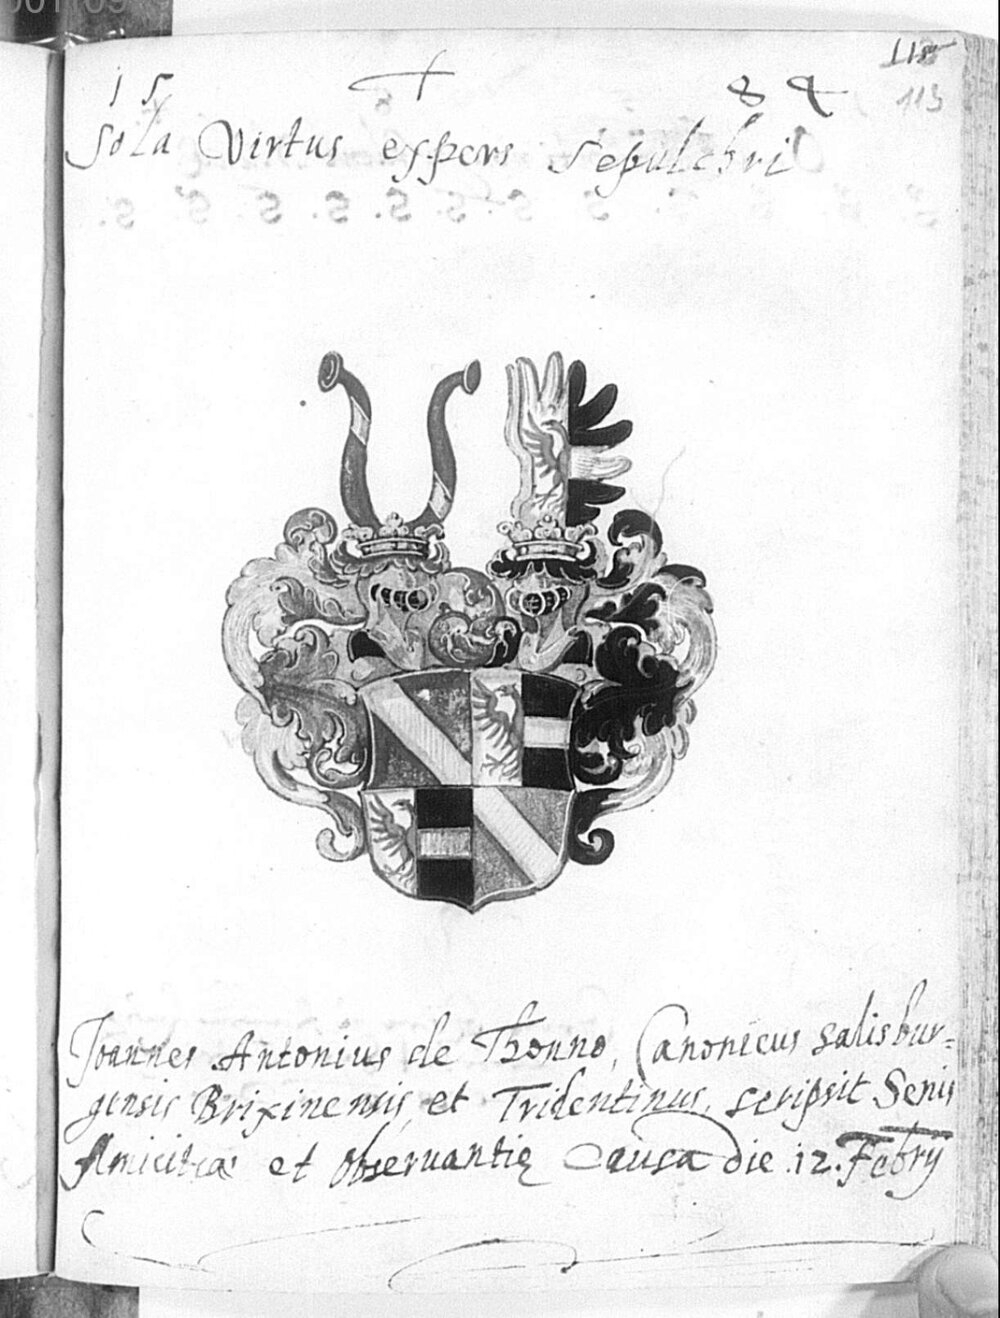 118
113
15 + 84
Sola Virtus expers sepulchri
Joannes Antonius de Thonno, Canonicus Salisbur-
gensis Brixinensis, et Tridentinus, scripsit Senis
Amicitiæ et Observantię Causa die .12. Febrij